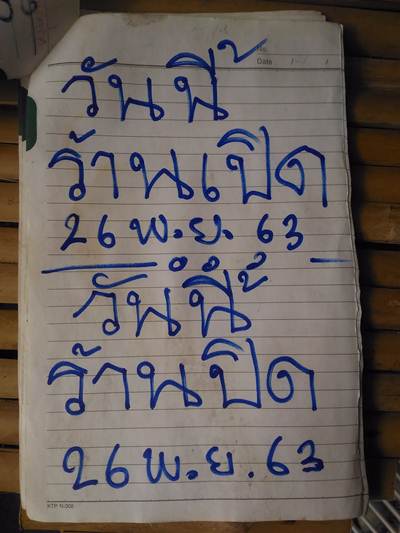 No.
Date / /
วันนี้
ร้านเปิด
26 พ.ย. 63
วันนี้
ร้านปิด
26 พ.ย. 63
KTP. N-006